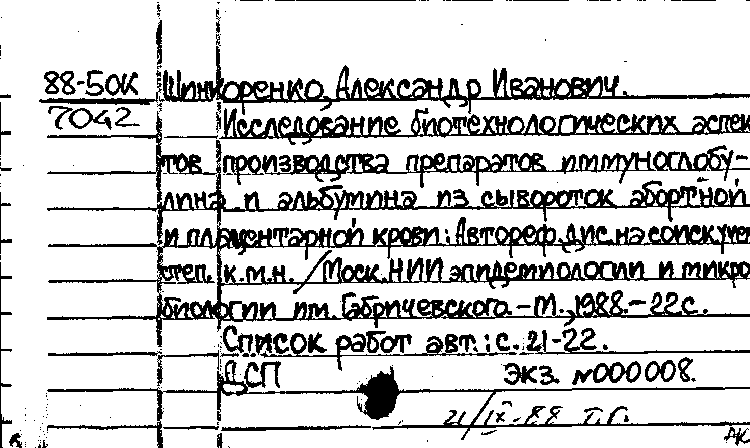 88-50К Шинкоренко, Александр Иванович.
7042 Исследование биотехнологических аспек
тов производства препаратов иммуноглобу-
лина и альбумина из сывороток абортной
и плацентарной крови: Автореф. дис. на соиск учен
степ. к.м.н. / Моск. НИИ эпидемиологии и микро
биологии им. Габричевского. - М., 1988. - 22 с.
Список работ авт.: с. 21-22.
ДСП экз. №000008.
21/IX-88